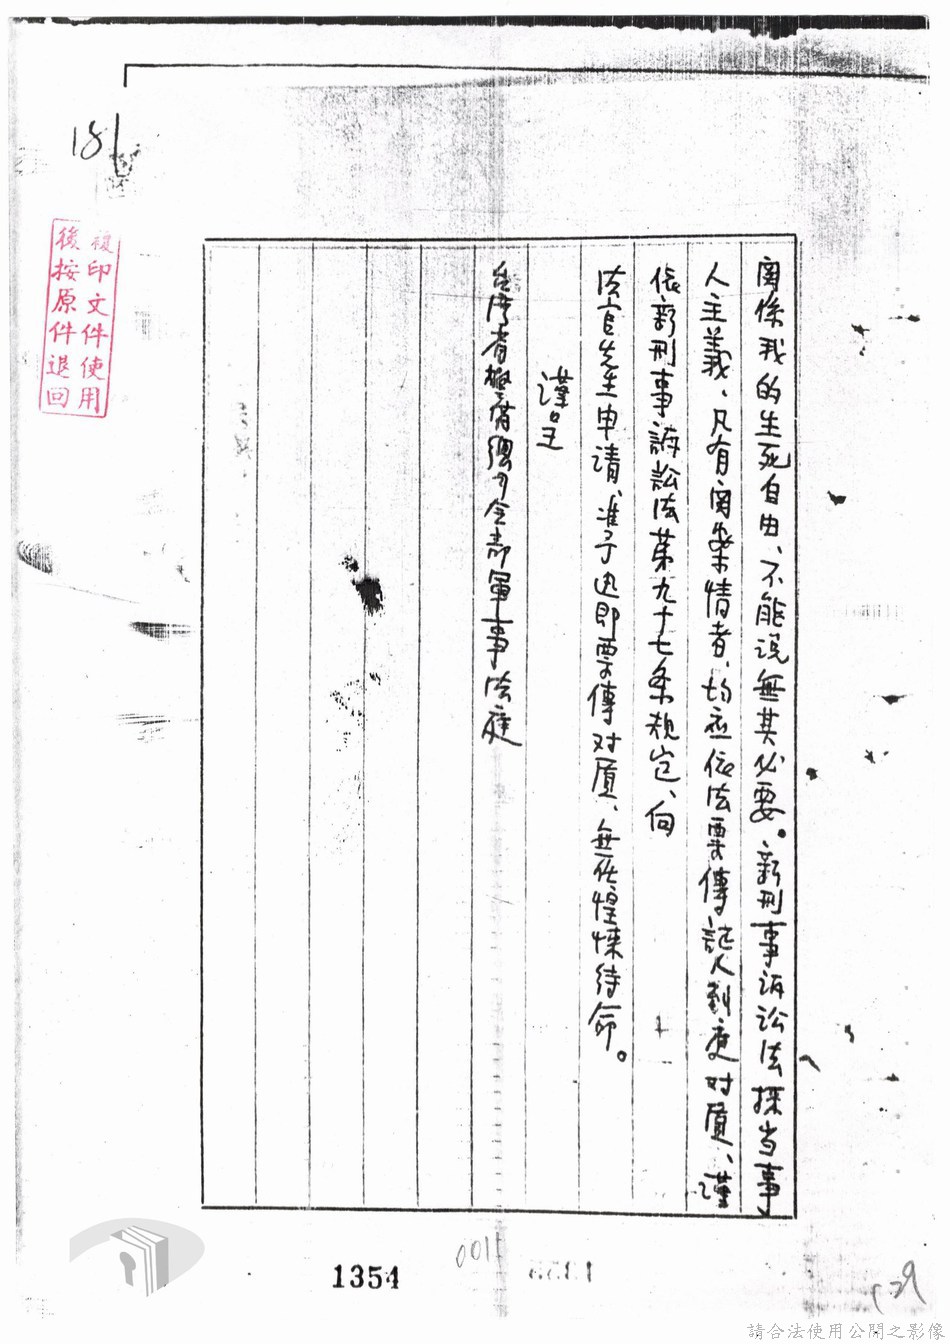 181
複印文件使用
後按原件退回
関係我的生死自由、不能说無其必要。新刑事诉訟法採当事
人主義、凡有関案情者、均应依法票傳証人到庭对质、谨
依新刑事訴訟法第九十七条規定、向
法官先生申请、准予迅即票傳对质、無任惶悚待命。
谨呈
台湾省警備總司令部軍事法庭
1354
001
請合法使用公開之影像